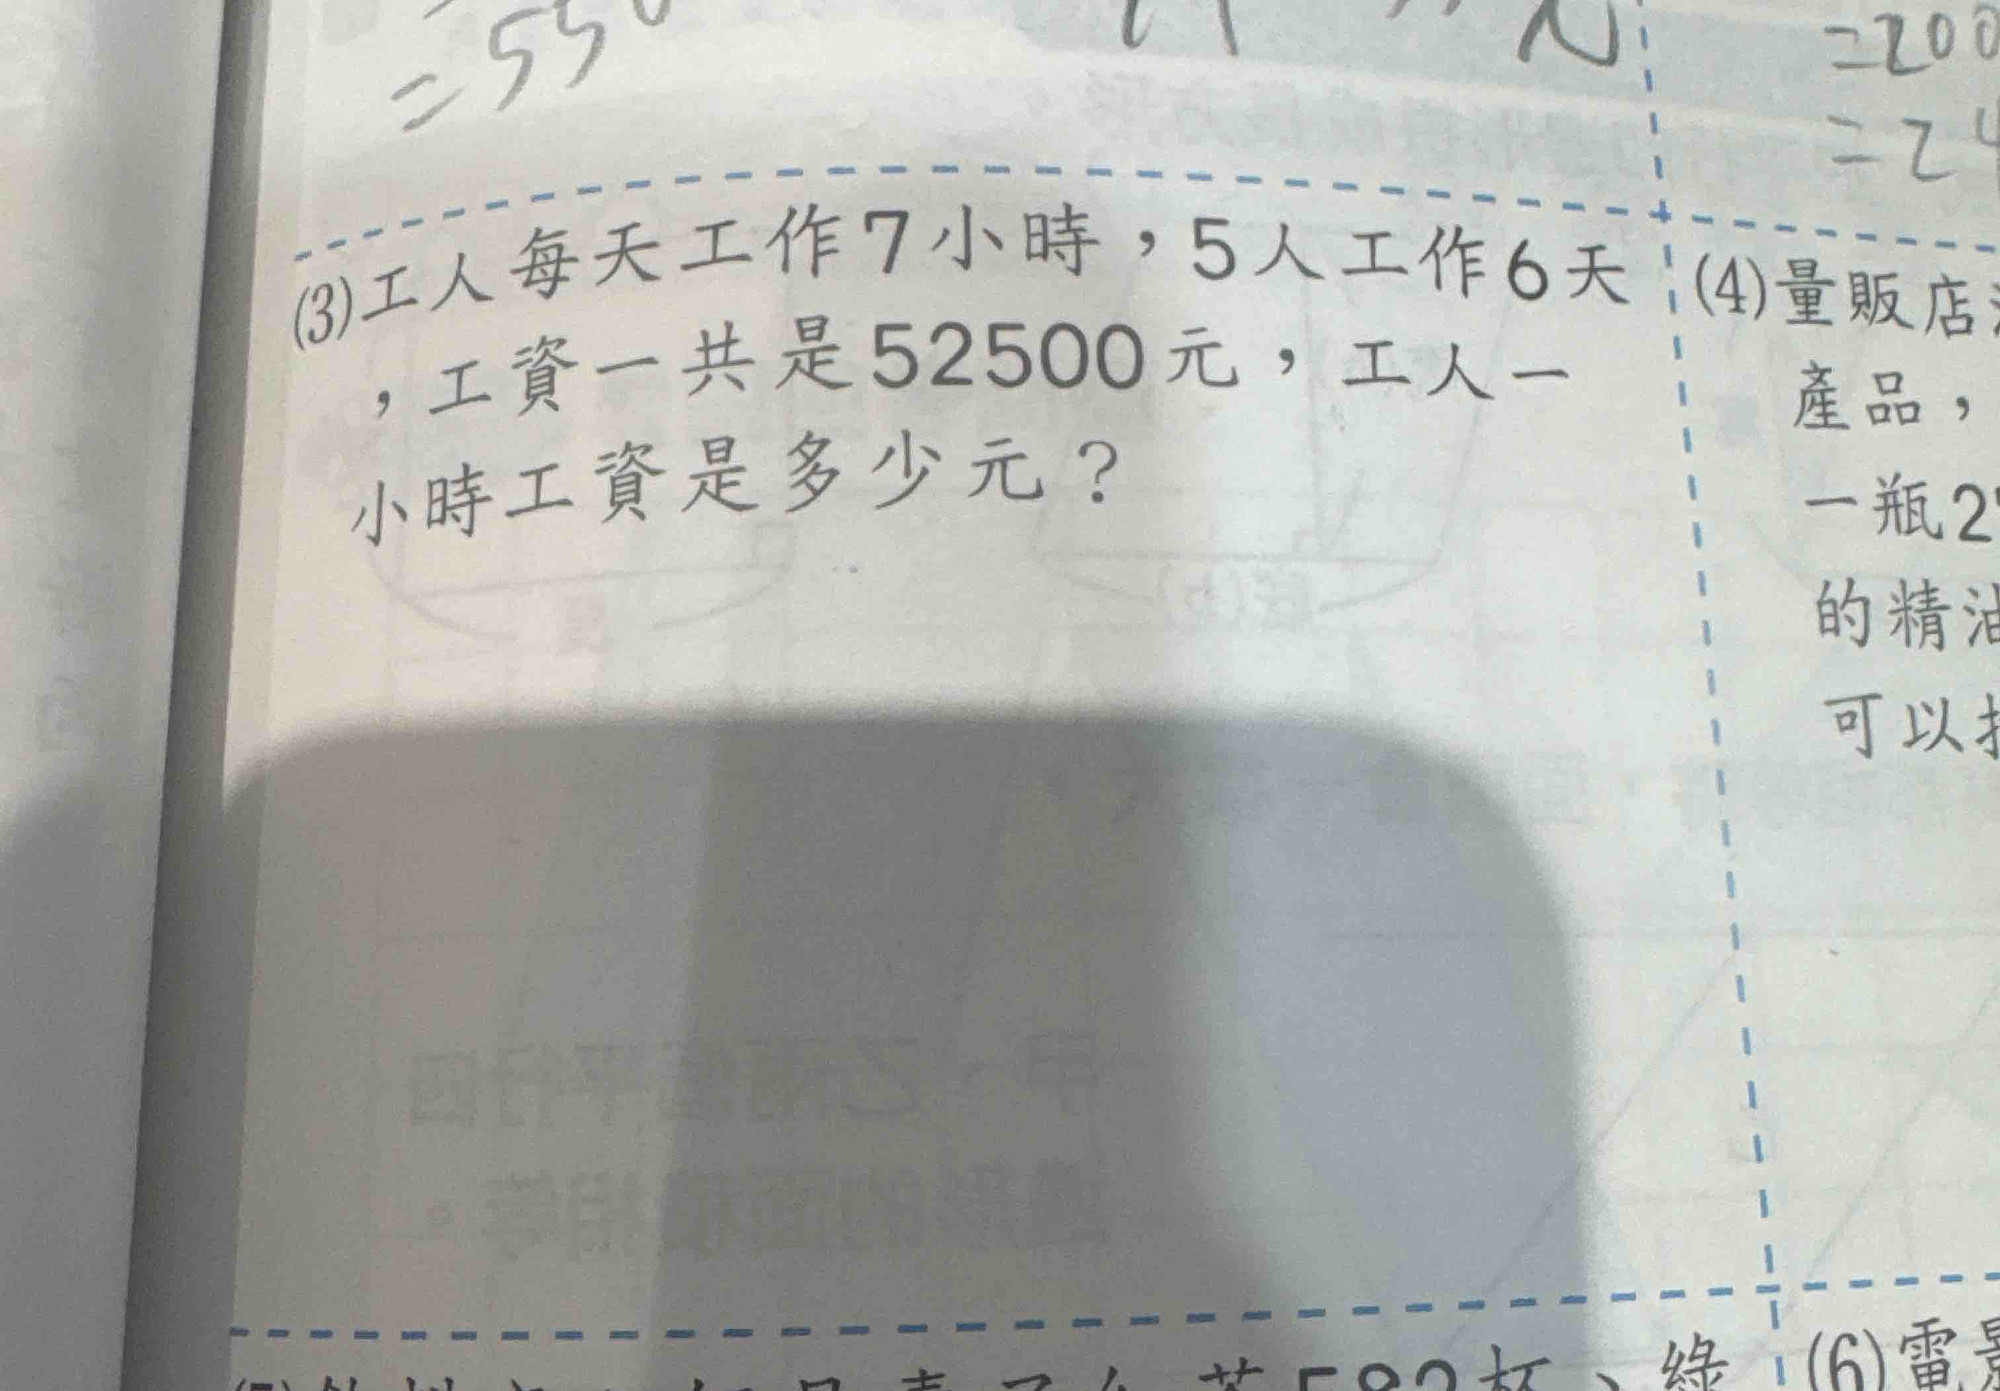 =550
元
=200
=24
(3)工人每天工作7小時，5人工作6天
，工資一共是52500元，工人一
小時工資是多少元？
(4)量販店
產品，
一瓶2
的精油
可以
582杯、綠
(6)電影